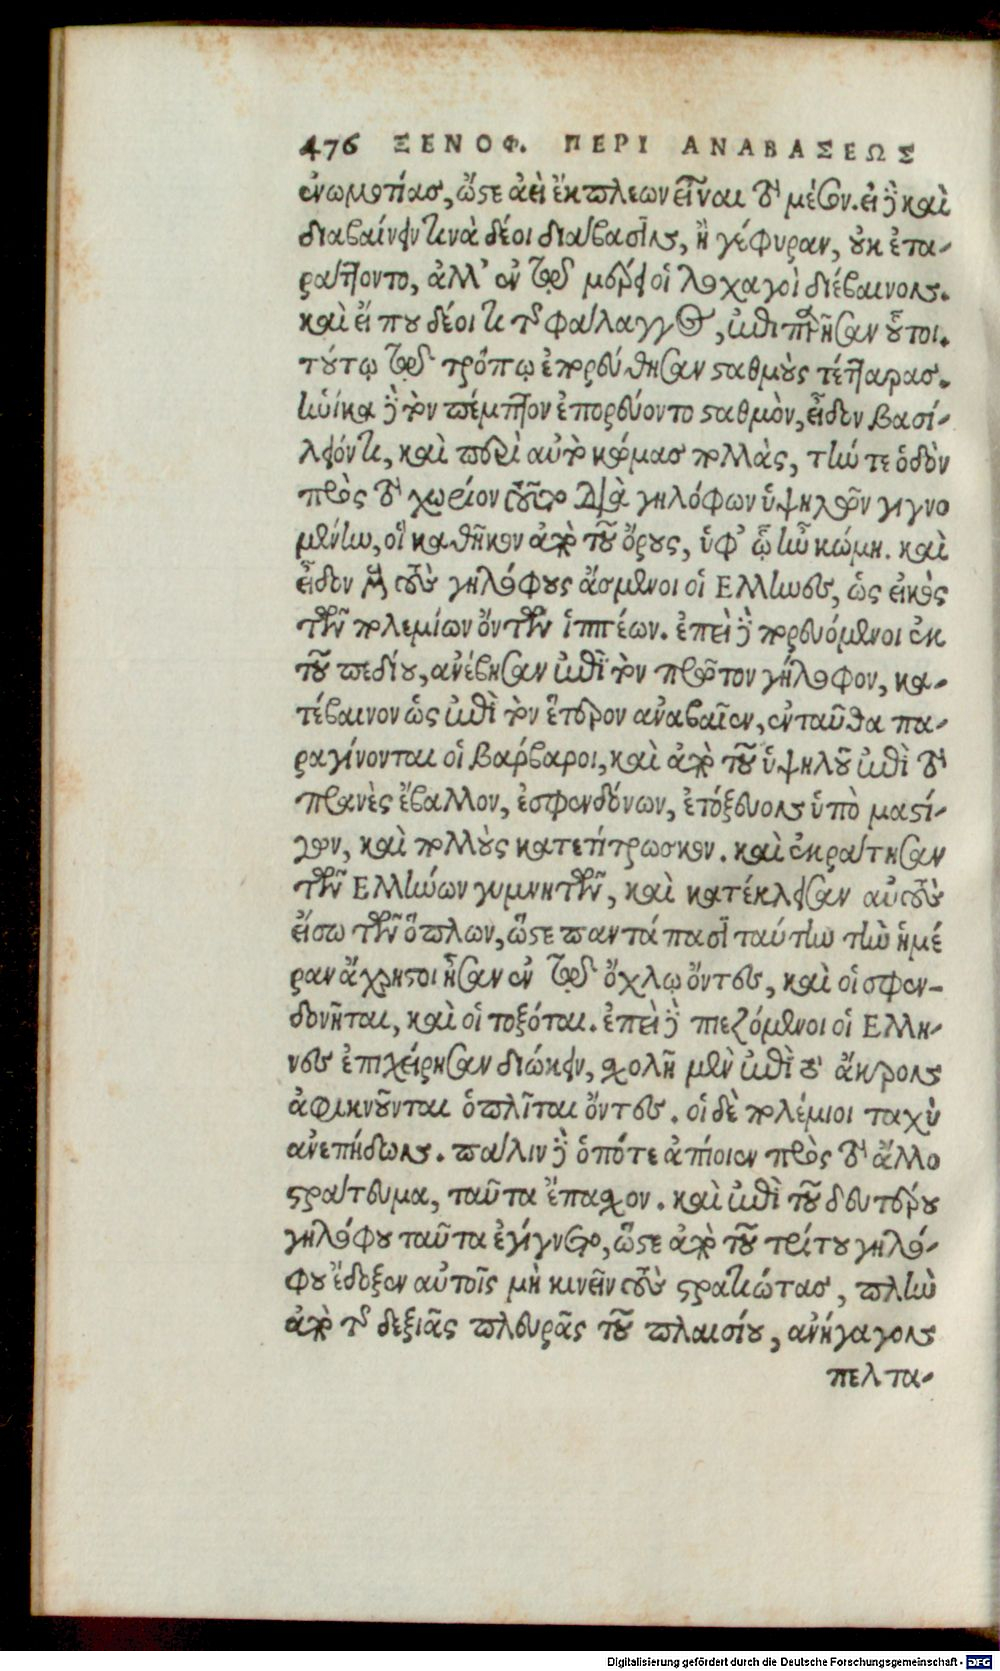 476 ΞΕΝΟΦ. ΠΕΡΙ ΑΝΑΒΑΣΕΩΣ
ἐνωμοτίας, ὥστε ἀεὶ ἔκπλεων εἶναι τὸ μέσον. εἰ δὲ καὶ
διαβαίνειν τινὰ δέοι διάβασιν, ἢ γέφυραν, οὐκ ἐτα-
ράττοντο, ἀλλ' ἐν τῷ μέρει οἱ λοχαγοὶ διέβαινον.
καὶ εἴ που δέοι τι τῆς φάλαγγος, ἐπιπαρῆσαν οὗτοι.
τούτῳ τῷ τρόπῳ ἐπορεύθησαν σταθμοὺς τέτταρας.
ἡνίκα δὲ τὸν πέμπτον ἐπορεύοντο σταθμὸν, εἶδον βασί-
λειόντι, καὶ περὶ αὐτὸ κώμας πολλὰς, τήν τε ὁδὸν
πρὸς τὸ χωρίον τοῦτο διὰ γηλόφων ὑψηλῶν γιγνο
μένην, οἳ καθῆκον ἀπὸ τοῦ ὄρους, ὑφ' ᾧ ἦν κώμη. καὶ
εἶδον μὲν τοὺς γηλόφους ἄσμενοι οἱ Ελληνες, ὡς εἰκὸς
τῶν πολεμίων ὄντων ἱππέων. ἐπεὶ δὲ πορευόμενοι ἐκ
τοῦ πεδίου, ἀνέβησαν ἐπὶ τὸν πρῶτον γήλοφον, κα-
τέβαινον ὡς ἐπὶ τὸν ἕτερον ἀναβαῖεν, ἐνταῦθα πα-
ραγίνονται οἱ Βάρβαροι, καὶ ἀπὸ τοῦ ὑψηλοῦ ἐπὶ τὸ
πρανὲς ἔβαλλον, ἐσφενδόνων, ἐτόξευον ὑπὸ μαστί-
γων, καὶ πολλοὺς κατετίτρωσκον. καὶ ἐκράτησαν
τῶν Ελλήνων γυμνητῶν, καὶ κατέκλεισαν αὐτοὺς
εἴσω τῶν ὅπλων, ὥστε παντάπασι ταύτην τὴν ἡμέ
ραν ἄχρηστοι ἦσαν ἐν τῷ ὄχλῳ ὄντες, καὶ οἱ σφεν-
δονῆται, καὶ οἱ τοξόται. ἐπεὶ δὲ πιεζόμενοι οἱ Ελλη-
νες ἐπιχείρησαν διώκειν, σχολῇ μὲν ἐπὶ τὸ ἄκρον
ἀφικνοῦνται ὁπλῖται ὄντες. οἱ δὲ πολέμιοι ταχὺ
ἀνεπήδων. πάλιν δὲ ὁπότε ἀπίοιεν πρὸς τὸ ἄλλο
στράτευμα, ταῦτα ἔπασχον. καὶ ἐπὶ τοῦ δευτέρου
γηλόφου ταῦτα ἐγίγνετο, ὥστε ἀπὸ τοῦ τρίτου γηλό-
φου ἔδοξεν αὐτοῖς μὴ κινεῖν τοὺς στρατιώτας, πλὴν
ἀπὸ τῆς δεξιᾶς πλευρᾶς τοῦ πλαισίου, ἀνήγαγον
πελτα-
Digitalisierung gefördert durch die Deutsche Forschungsgemeinschaft - DFG